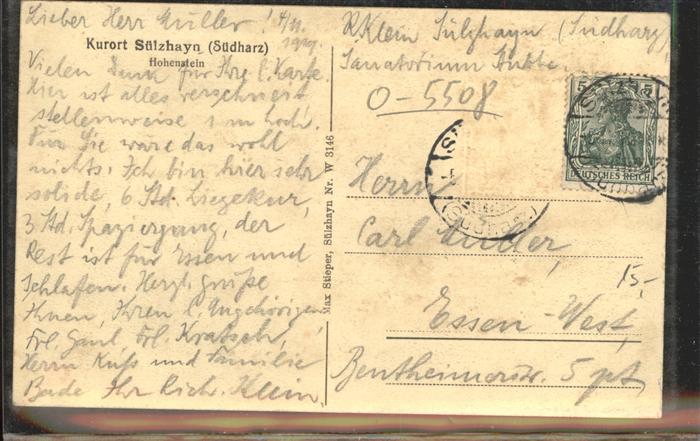 Lieber Herr Müller! 4/11.
1919.
Kurort Sülzhayn (Südharz)
Hohenstein
Vielen Dank für Ihre l. Karte.
Hier ist alles verschneit,
stellenweise 1 m hoch.
Für Sie wäre das wohl
nichts. Ich bin hier sehr
solide, 6 Std. Liegekur,
3 Std. Spaziergang, der
Rest ist für Essen und
Schlafen. Herzl. Grüße
Ihnen, Ihren l. Angehörigen
Frl. Frl. Kratsch,
Herrn Küß und Familie
Ihr Rich. Klein
Max Stieper, Sülzhayn Nr. W 3146
R. Klein Sülzhayn (Südharz)
Sanatorium
O-5508
5 5
DEUTSCHES REICH
Herrn
Carl Müller,
15,-
Essen-West,
Bentheimerstr. 5 pt.